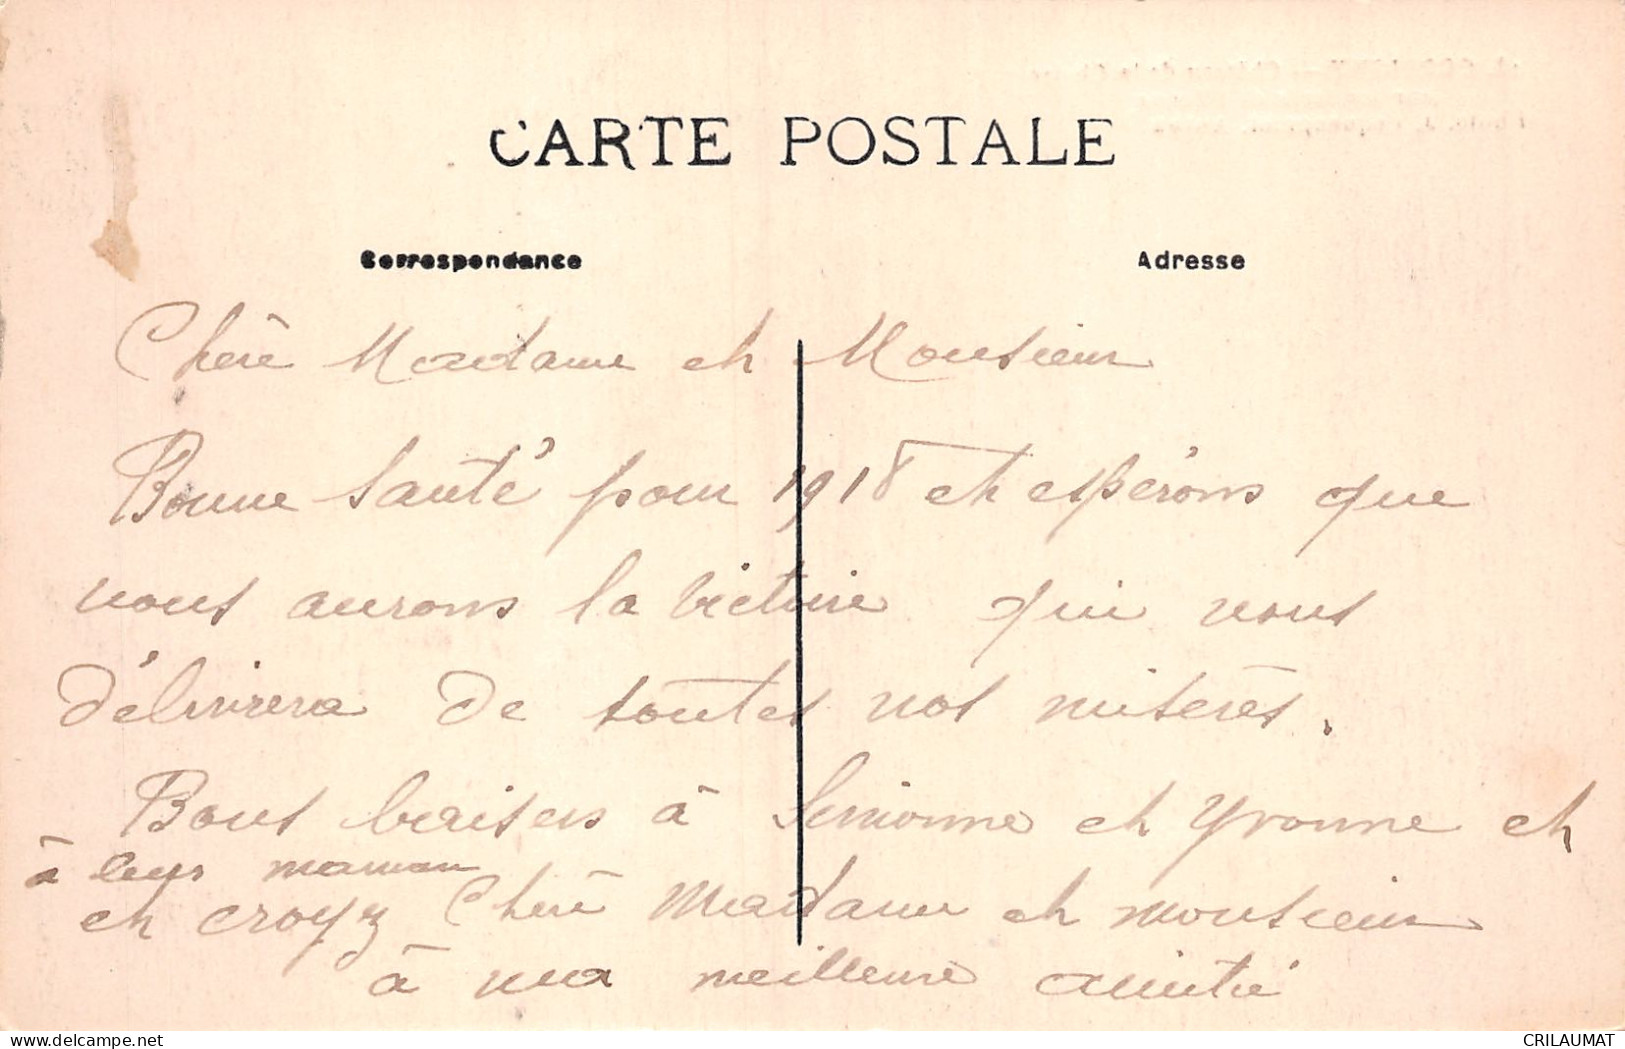 CARTE POSTALE
Correspondance
Adresse
Chère Madame et Monsieur
Bonne Santé pour 1918 et espérons que
nous aurons la Victoire qui nous
délivrera de toutes nos misères.
Bons baisers à Simonne et Yvonne et
à leur maman
et croyz Chère Madame et monsieur
à ma meilleure amitié
delcampe.net
CRILAUMAT